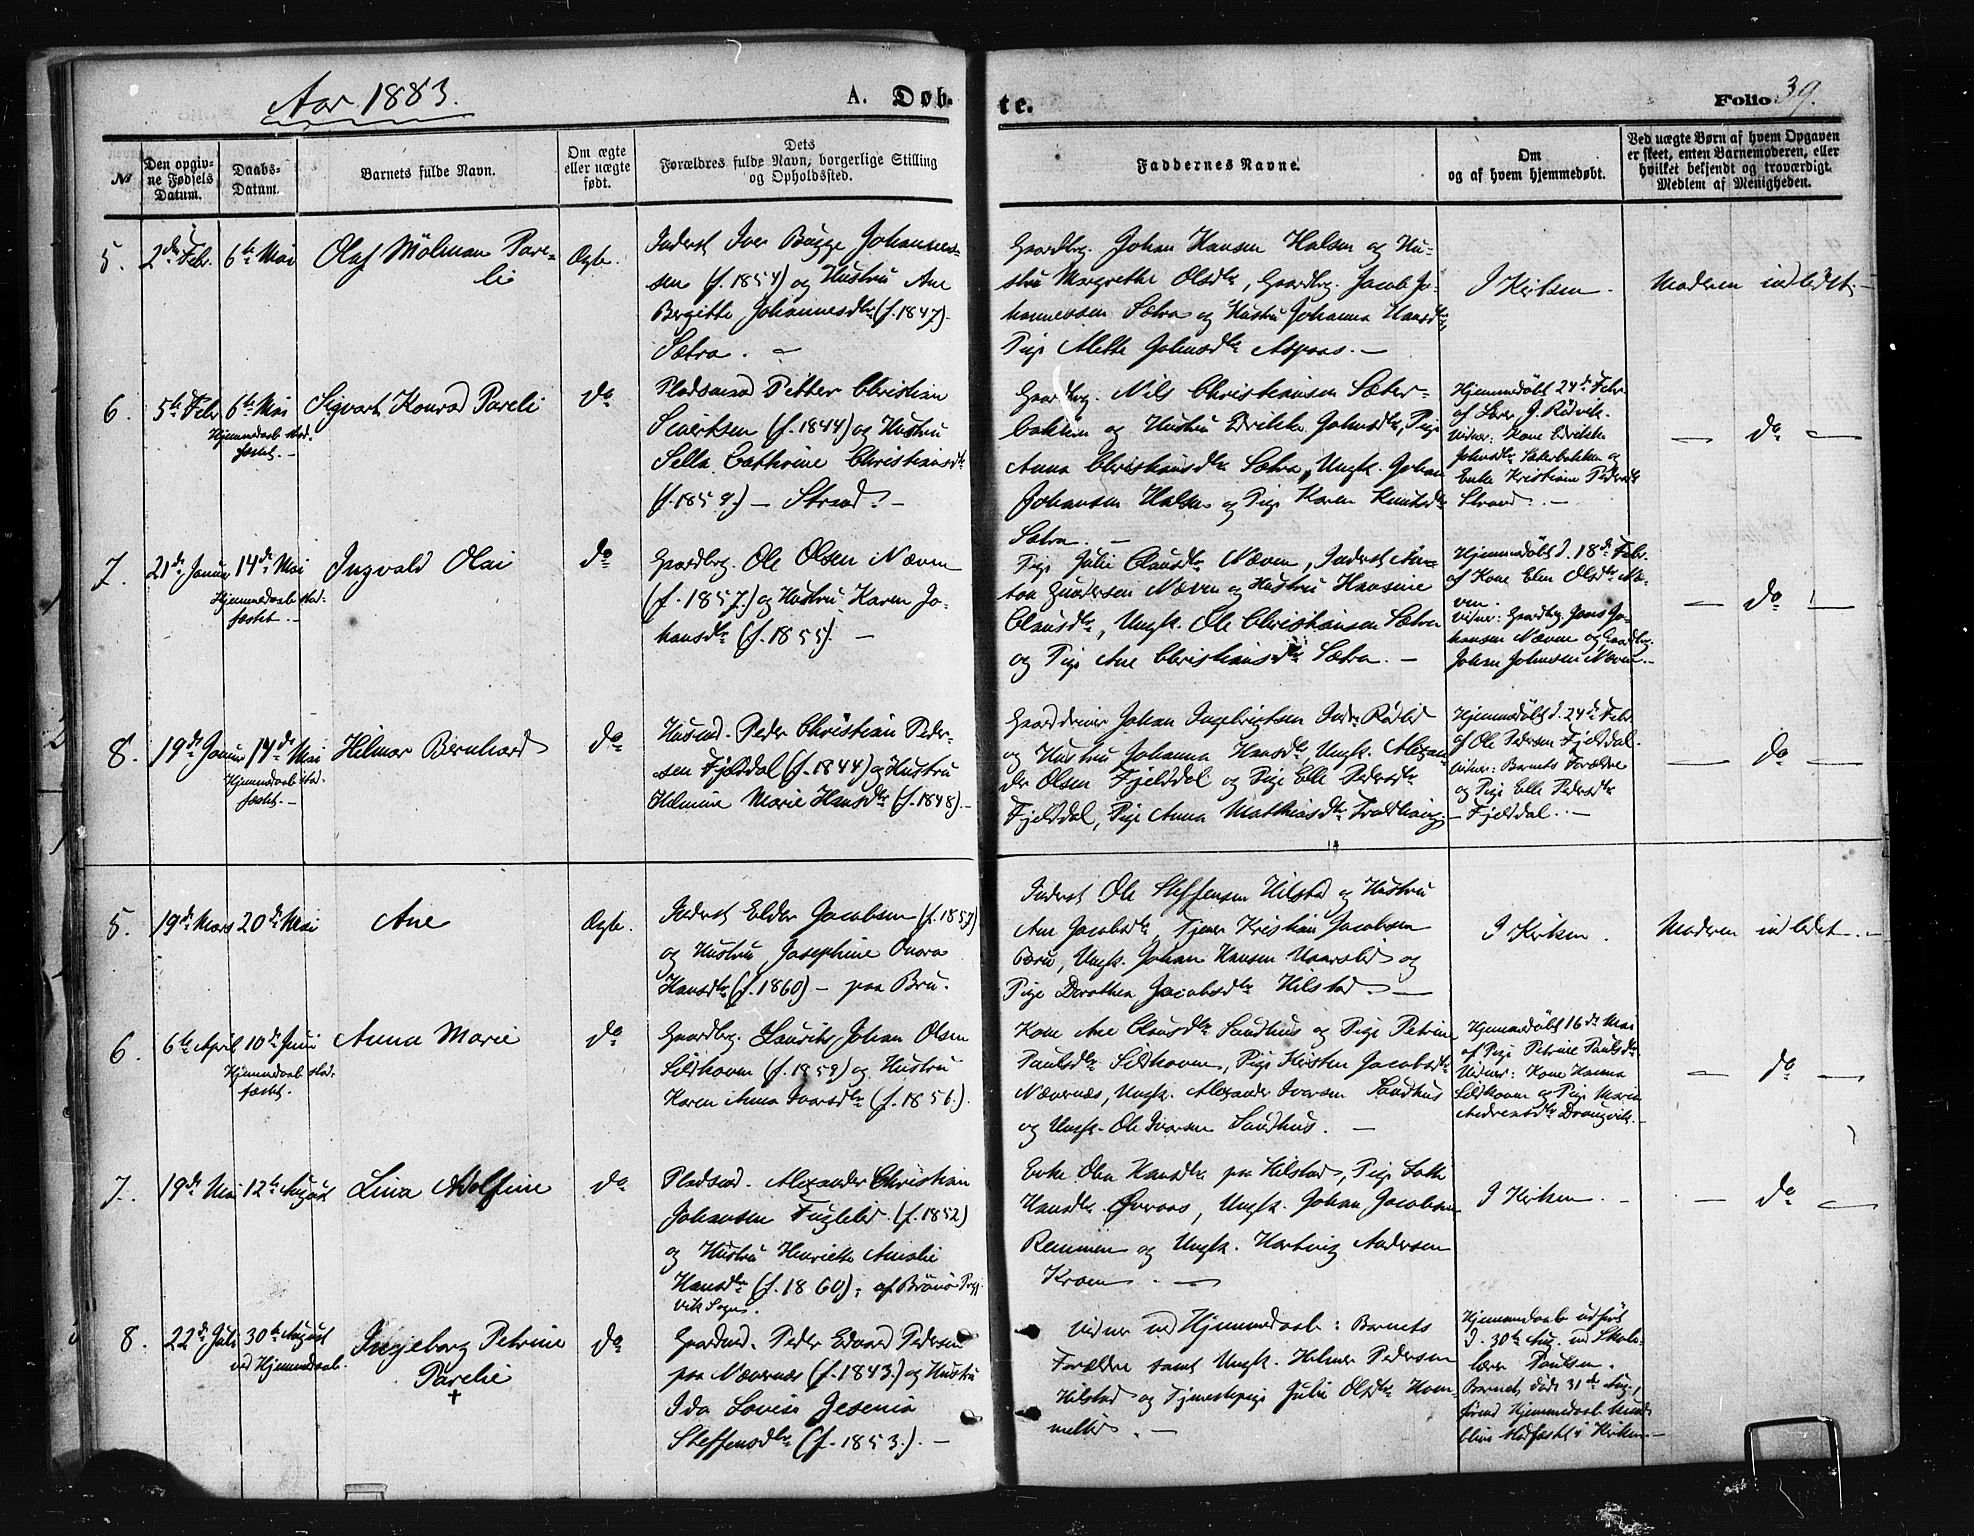 Aar 1883.
A. Døb-
te.
Folio 39.
No
Den opgiv-
ne Fødsels
Datum.
Daabs-
Datum.
Barnets fulde Navn.
Om ægte
eller uægte
født.
Dets
Forældres fulde Navn, borgerlige Stilling
og Opholdssted.
Faddernes Navne.
Om
og af hvem hjemmedøbt.
Ved uægte Børn af hvem Opgaven
er skeet, enten Barnemoderen, eller
hvilket bekjendt og troværdigt
Medlem af Menigheden.
5.
2den Febr.
6te Mai
Olaf Mölman Pare-
li
Ægte.
Inderst Iver Bugge Johannes-
sen (f. 1854) og Hustru Ane
Bergitte Johannesdtr (f. 1847)
Sætra. -
Gaardbrg. Johan Hansen Halsen og Hu-
stru Margrethe Olsdtr, Gaardbrg. Jacob Jo-
hannessen Sætra og Hustru Johanna Hansdtr,
Pige Alette Johnsdtr Aspaas. -
I Kirken.
Moderen indledet. -
6.
5te Febr
6te Mai
Hjemmedaab stad-
fæstet. -
Sigvart Konrad Pareli
do
Pladsmand Petter Christian
Sivertsen (f. 1844) og Hustru
Sella Cathrine Christiansdtr
(f. 1859) - Strand. -
Gaardbrg. Nils Christiansen Sæter-
bakken og Hustru Edrikke Johnsdtr, Pige
Anna Christiansdtr Sætra, Ungk. Johan
Johansen Halsen og Pige Karen Knutsdtr
Sætra. -
Hjemmedöbt 24de Febr.
af Lærer J. Rödvik.
Vidner: Kone Edrikke
Johnsdtr Sæterbakken og
Enke Kristiane Pedersdtr
Strand. -
- do -
7.
21de Januar
14de Mai
Hjemmedaab stad-
fæstet. -
Ingvald Olai
do
Gaardbrg. Ole Olsen Næven
(f. 1857) og Hustru Karen Jo-
hansdtr (f. 1855). -
Pige Julie Clausdtr Næven, Inderst An-
ton Gundersen Næven og Hustru Hansine
Clausdtr, Ungk. Ole Christiansen Sætra
og Pige Ane Christiansdtr Sætra. -
Hjemmedöbt d. 18de Febr.
af Kone Elen Olsdtr Næ-
ven.
Vidner: Gaardbrg. Jens Jo-
hansen Næven og Gaardbrg.
Johan Johnsen Næven. -
- do -
8.
19de Januar
14de Mai
Hjemmedaab stad-
fæstet. -
Hilmar Bernhard
do
Husmd. Peder Christian Peder-
sen Fjelddal (f. 1844) og Hustru
Helmine Marie Hansdtr (f. 1848). -
Gaarddriver Johan Ingebrigtsen Indr. Rödlid
og Hustru Johanna Hansdtr, Ungk. Alexan-
der Olsen Fjelddal og Pige Elle Pedersdtr
Fjelddal, Pige Anna Mathiasdtr
Hjemmedöbt d. 24de Febr.
af Ole Pedersen Fjelddal.
Vidner: Barnets Forældre
og Pige Elle Pedersdtr
Fjelddal. -
- do -
5.
19de Mars
20de Mai
Ane
Ægte.
Inderst Elder Jacobsen (f. 1857)
og Hustru Josephine Onora
Hansdtr (f. 1860) - paa Bru.
Inderst Ole Steffensen Hilstad og Hustru
Ane Jacobsdtr, Tjener Kristian Jacobsen
Bru, Ungk. Johan Hansen Uaarslid og
Pige Dorothea Jacobsdtr Hilstad. -
I Kirken.
Moderen indledet. -
6.
6te April
10de Juni
Hjemmedaab stad-
fæstet.
Anna Marie
do
Gaardbrg. Laurits Johan Olsen
Sildhoven (f. 1859) og Hustru
Karen Anna Ivarsdtr (f. 1856).
Kone Ane Clausdtr Sandhus og Pige Petrine
Paulsdtr Sildhoven, Pige Kirsten Jacobsdtr
Nævernæs, Ungk. Alexander Ivarsen Sandhus
og Ungk. Ole Ivarsen Sandhus. -
Hjemmedöbt 16de Mai
af Pige Petrine Paulsdtr.
Vidner: Kone Hanna
Sildhoven og Pige Marie
Andreasdtr Drangvik. -
- do -
7.
19de Mai
12te August
Lina Adolfine
do
Pladsmd. Alexander Christian
Johansen Fuglelid (f. 1852)
og Hustru Henriette Amalie
Hansdtr (f. 1860), af Brönö Prgj.
Vik Sogn.
Enke Olea Hansdtr paa Hilstad, Pige Lotte
Hansdtr Övraas, Ungk. Johan Jacobsen
Remmen og Ungk. Hartvig Andersen
Kroen. -
I Kirken. -
- do -
8.
22de Juli
30te August
ved Hjemmedaab.
Ingeborg Petrine
Parelie
†
do
Gaardmd. Peder Edvard Pedersen
paa Nævernæs (f. 1843) og Hustru
Ida Lovise Jesenia
Steffensdtr (f. 1853). -
Vidner ved Hjemmedaab: Barnets
Forældre samt Ungk. Hilmer Pedersen
Hilstad og Tjenestepige Julie Olsdtr Hom-
melid. -
Hjemmedaab udfört
d. 30te Aug. ved Skole-
lærer Paulsen.
Barnet døde 31de Aug.,
förend Hjemmedaab kunde
blive stadfæstet i Kirken. -